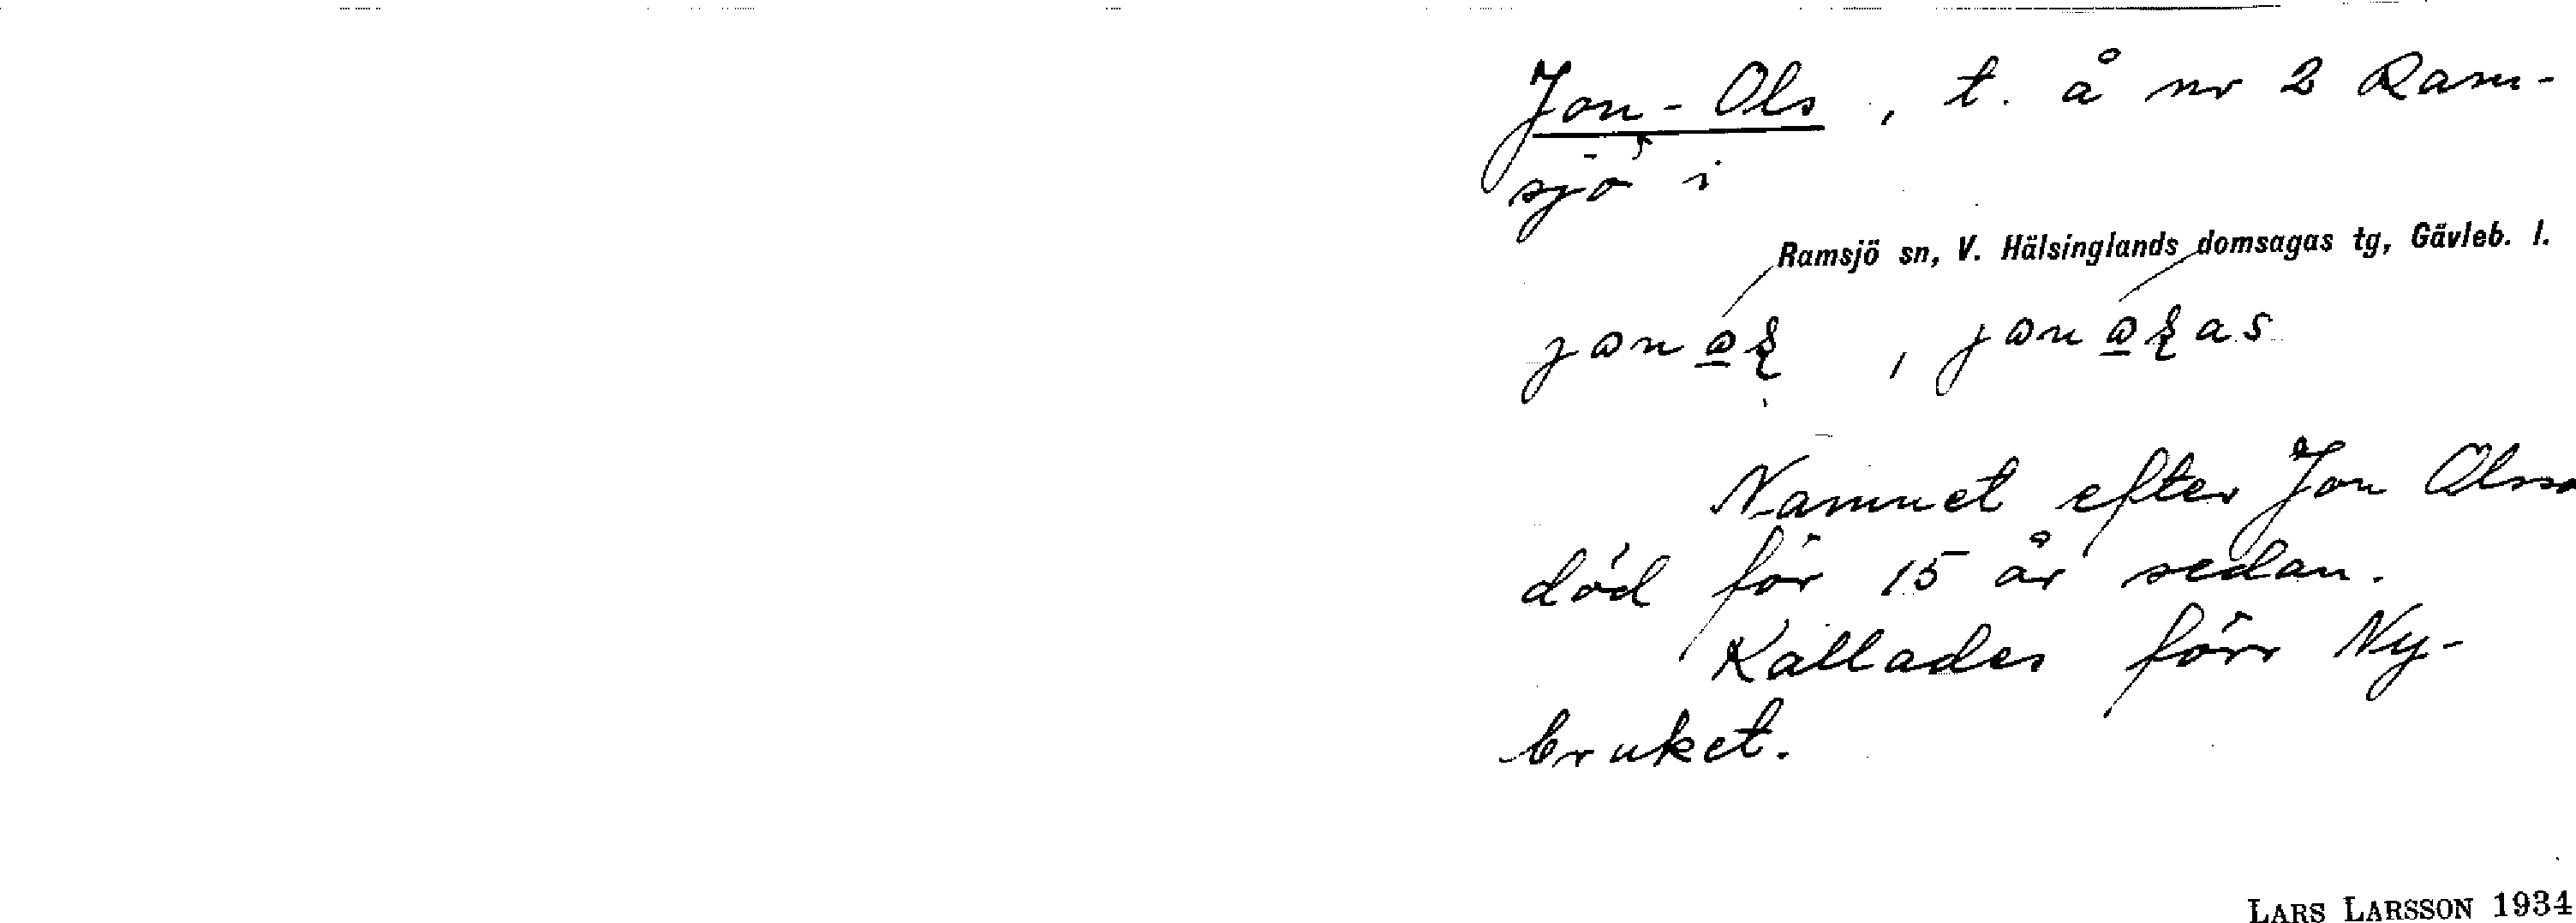 Jon-Ols, t. å nr 2 Ram-
sjö i
Ramsjö sn, V. Hälsinglands domsagas tg, Gävleb. l.
Namnet efter Jon Olsso
död för 15 år sedan.
Kallades förr Ny-
bruket.
LARS LARSSON 1934